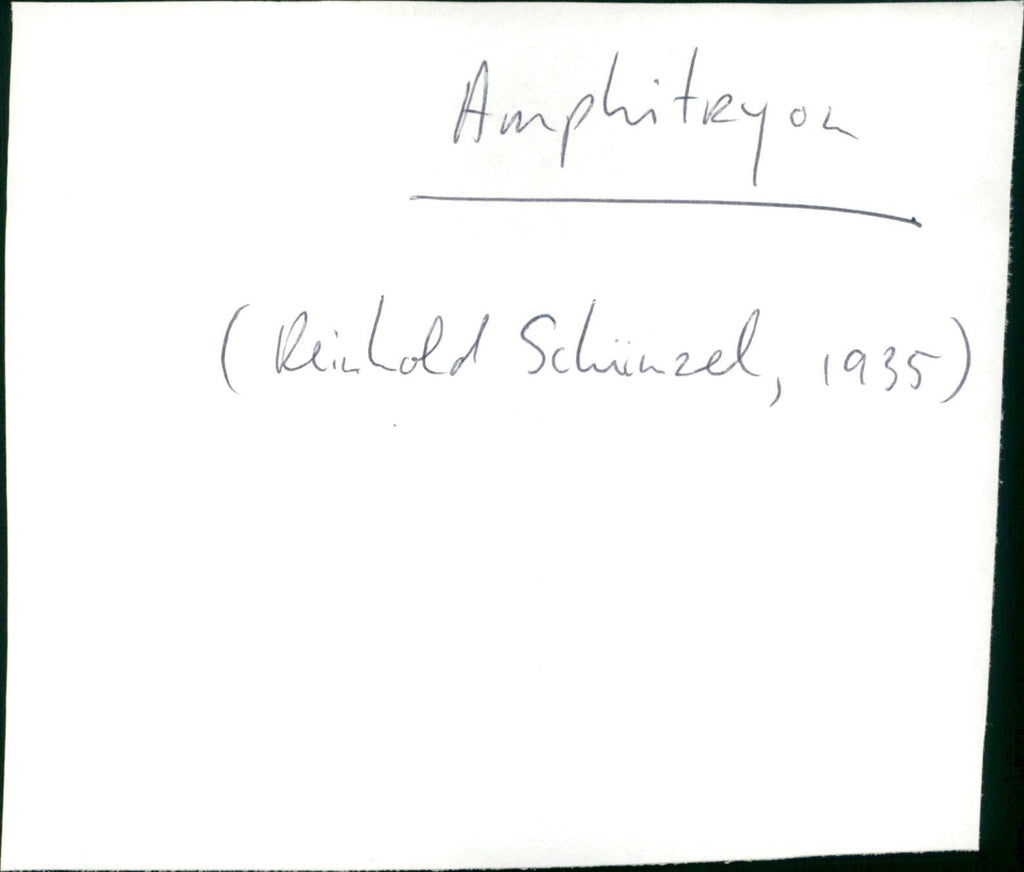 Amphitryon
(Reinhold Schünzel, 1935)